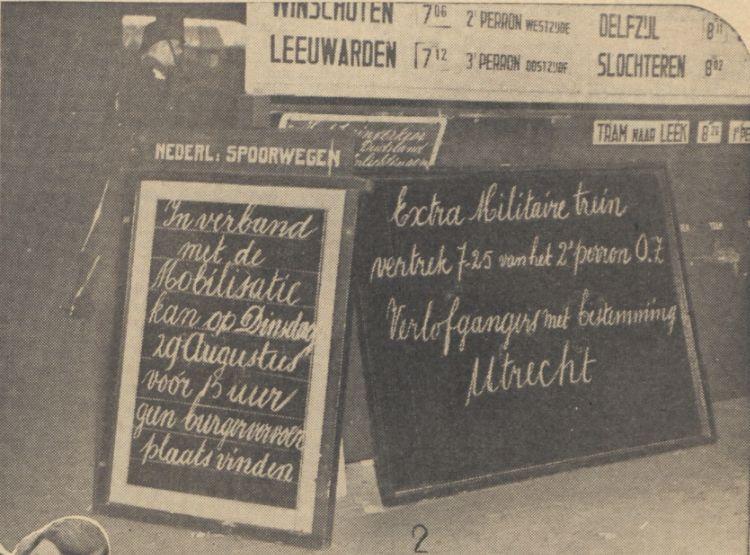 WINSCHOTEN 7 06 2e PERRON WESTZIJDE DELFZIJL 8 11
LEEUWARDEN 7 12 3e PERRON OOSTZIJDE SLOCHTEREN 8 02
TRAM NAAR LEEK 8 26
NEDERL: SPOORWEGEN
In verband
met de
Mobilisatie
kan op Dinsdag
29 Augustus
voór 15 uur
geen burgervervoer
plaats vinden
Extra Militaire trein
vertrek 7-25 van het 2e perron O.Z
Verlofgangers met bestemming
Utrecht
2